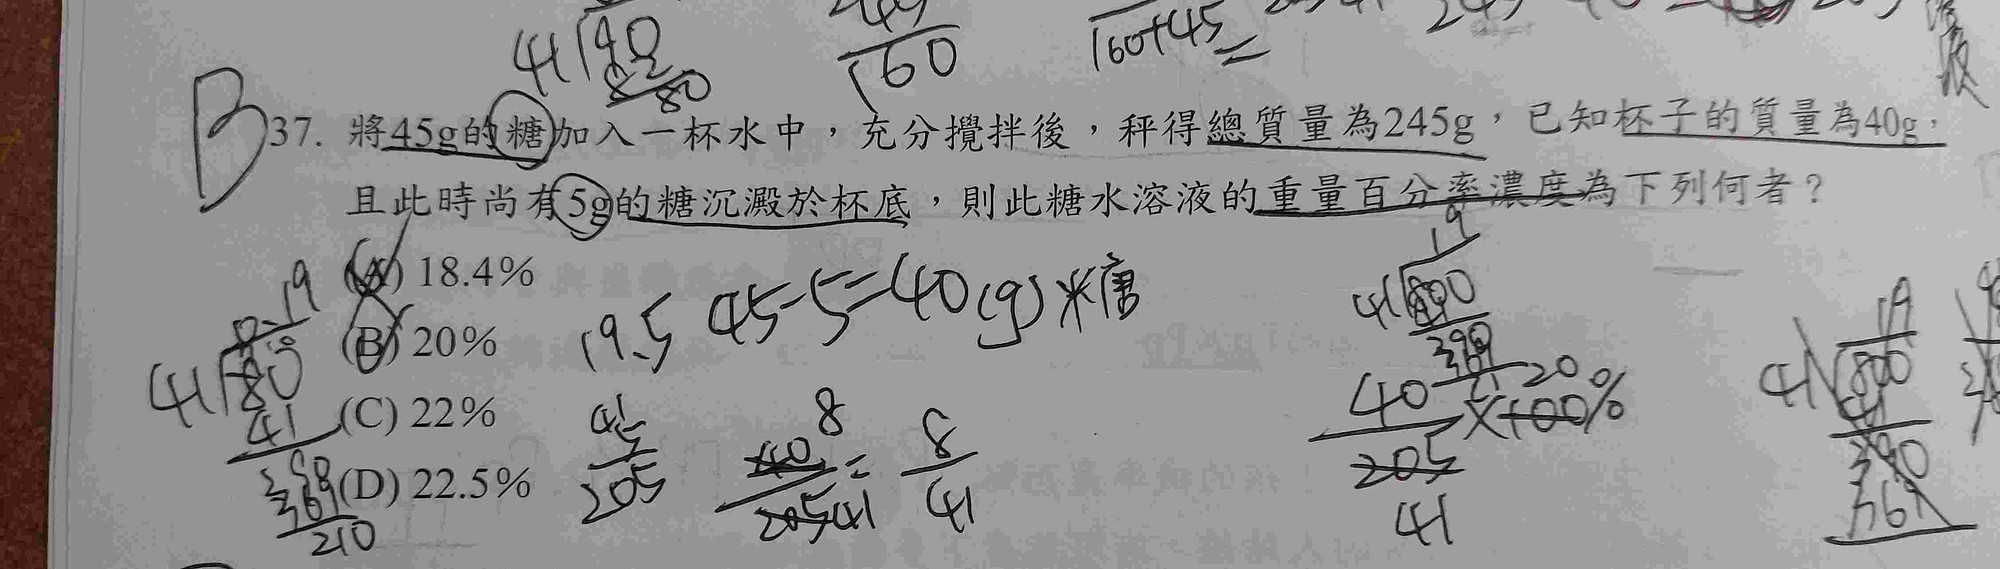 41 40
160
160+45=
B
37. 將45g的糖加入一杯水中，充分攪拌後，秤得總質量為245g，已知杯子的質量為40g，
且此時尚有5g的糖沉澱於杯底，則此糖水溶液的重量百分率濃度為下列何者？
(A) 18.4%
(B) 20%
(C) 22%
(D) 22.5%
19.5 45-5=40(g)糖
45/205
40/205 8/41 = 8/41
40/205 ×100% 20 41
41 800 19
41 80 0.19
41
369
210
41 800 19
41
390
369